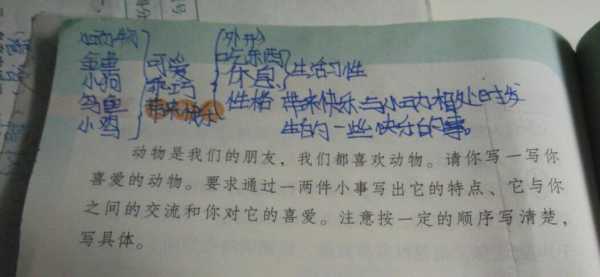 动物 外形
可爱 吃东西
小狗 乖巧 休息 生活习性
带来快乐 性格 带来快乐与小动物相处时发
小鸡 生的一些快乐的事。
动物是我们的朋友，我们都喜欢动物。请你写一写你
喜爱的动物。要求通过一两件小事写出它的特点、它与你
之间的交流和你对它的喜爱。注意按一定的顺序写清楚，
写具体。